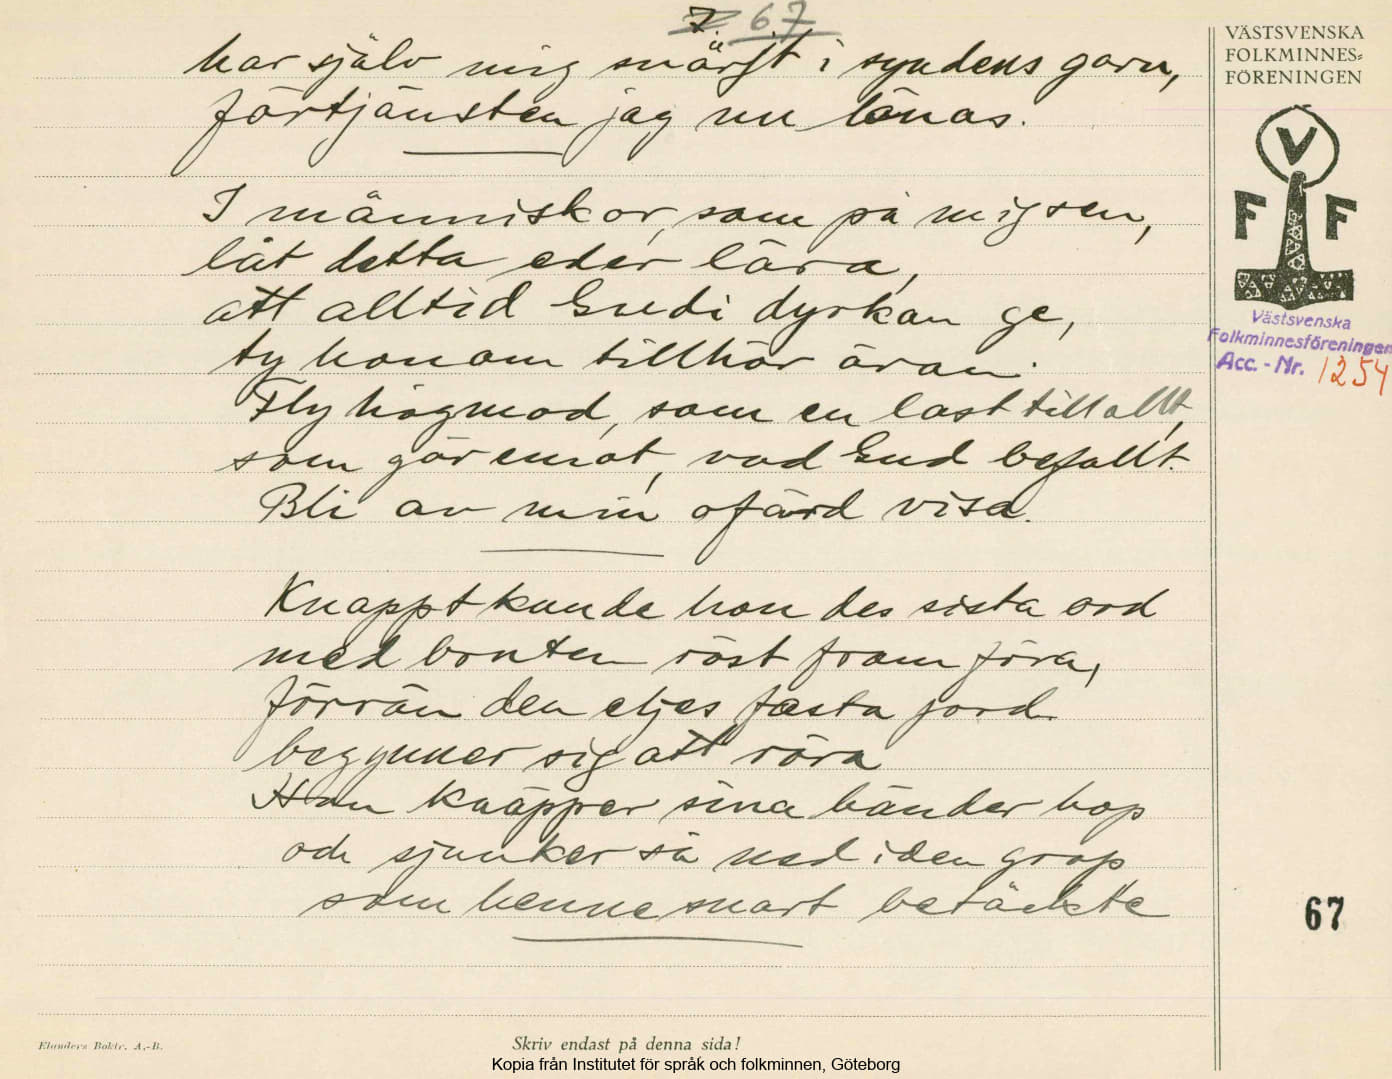 7. 67
har själv mig snärjt i syndens garn,
förtjänsten jag nu lönas.
I människor, som på mig sen,
låt detta eder lära,
att alltid Gudi dyrkan ge,
ty honom tillhör äran.
Fly högmod, som en last till allt,
som gör emot, vad Gud befallt.
Bli av min ofärd visa.
Knappt kunde hon des sista ord
med bruten röst fram föra,
förrän den eljes fasta jord
begynner sig att röra
Hon knäpper sina händer hop
och sjunker så ned i den grop
som henne snart betäckte
VÄSTSVENSKA
FOLKMINNES-
FÖRENINGEN
V
F F
Västsvenska
Folkminnesföreningen
Acc. - Nr. 1254
67
Elanders Boktr. A.-B.
Skriv endast på denna sida!
Kopia från Institutet för språk och folkminnen, Göteborg